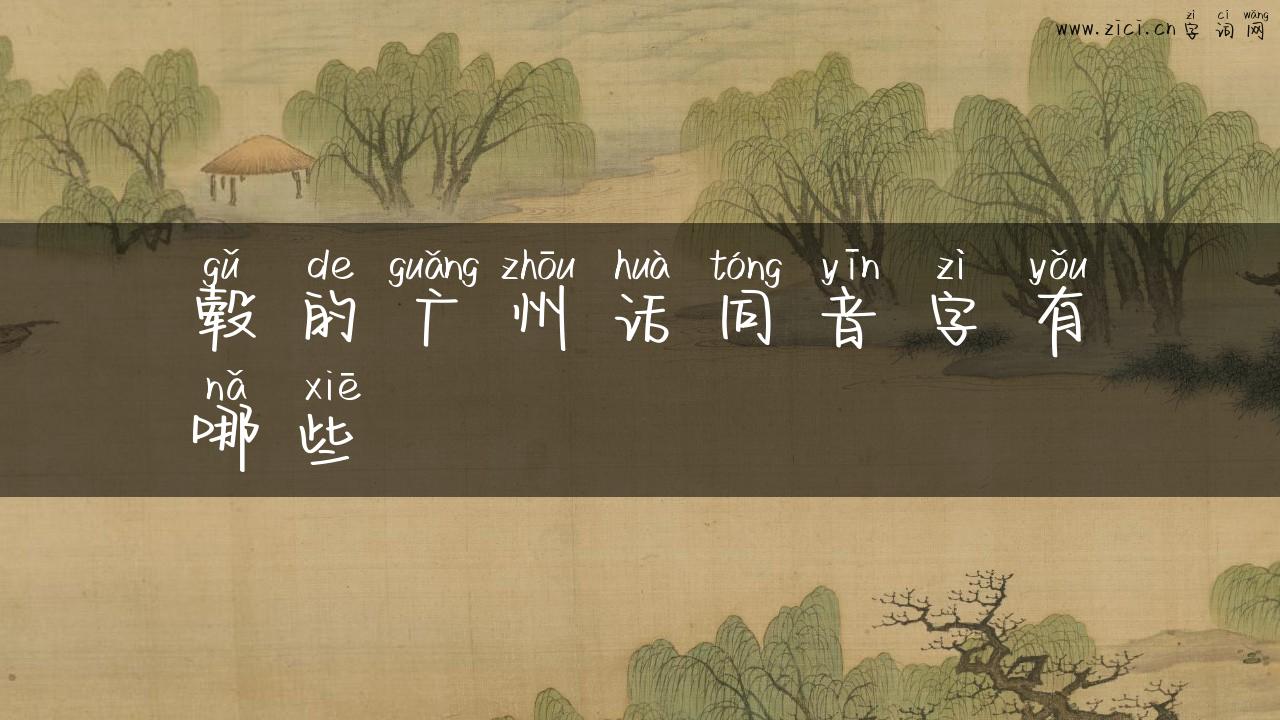 zì cí wǎng
www.zici.cn 字词网
gǔ de guǎng zhōu huà tóng yīn zì yǒu
毂的广州话同音字有
nǎ xiē
哪些